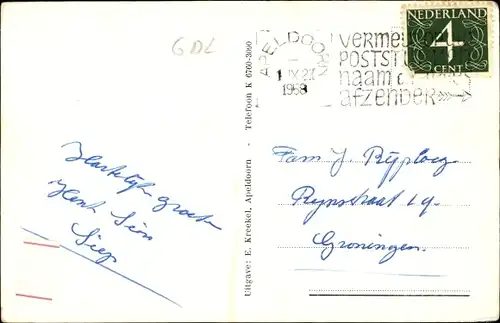 GDL
APELDOORN
1 IX 21
1958
vermel
POSTST
naam
afzender
NEDERLAND
4
CENT
Hartelijk groeten
Henk Sien
Siep
Uitgave: E. Kreekel, Apeldoorn - Telefoon K 6760-3090
Fam J. Rijploeg
Rijnstraat 19.
Groningen.